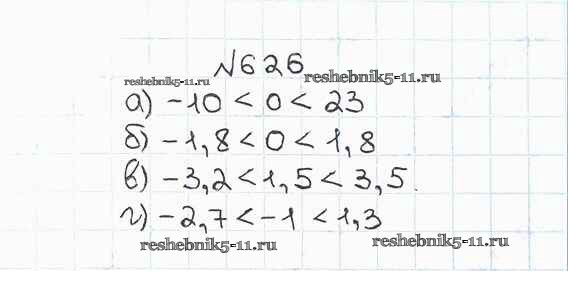 №626
reshebnik5-11.ru reshebnik5-11.ru
а) -10 < 0 < 23
б) -1,8 < 0 < 1,8
в) -3,2 < 1,5 < 3,5.
г) -2,7 < -1 < 1,3
reshebnik5-11.ru reshebnik5-11.ru